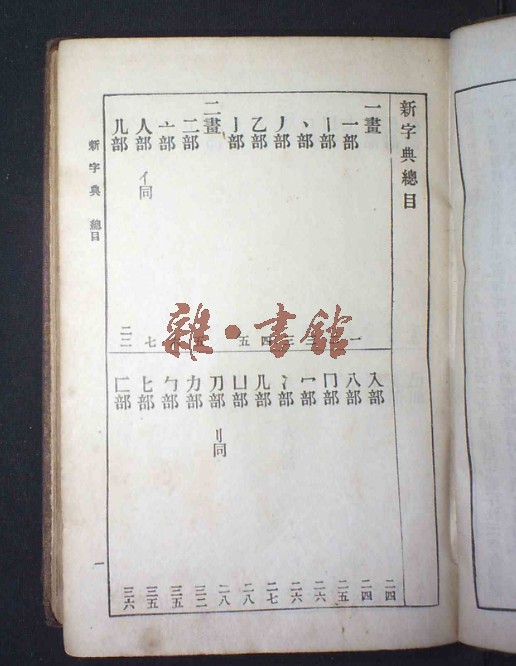 新字典總目
一畫
一部 一
丨部
丶部
丿部 三
乙部 四
亅部 五
二畫
二部
亠部
人部 亻同 七
儿部 二二
入部 二四
八部 二四
冂部 二五
冖部 二六
冫部 二六
几部 二七
凵部 二八
刀部 刂同 二八
力部 三二
勹部 三五
匕部 三五
匚部 三六
新字典 總目
一
雜·書館